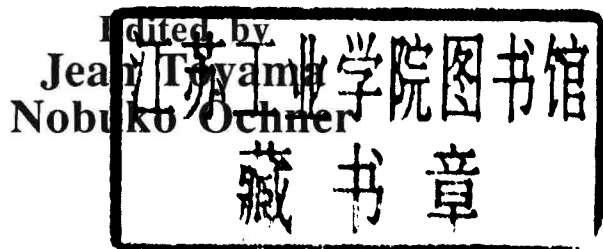 Edited by
Jean Toyama
Nobuko Ochner
江苏工业学院图书馆
藏书章